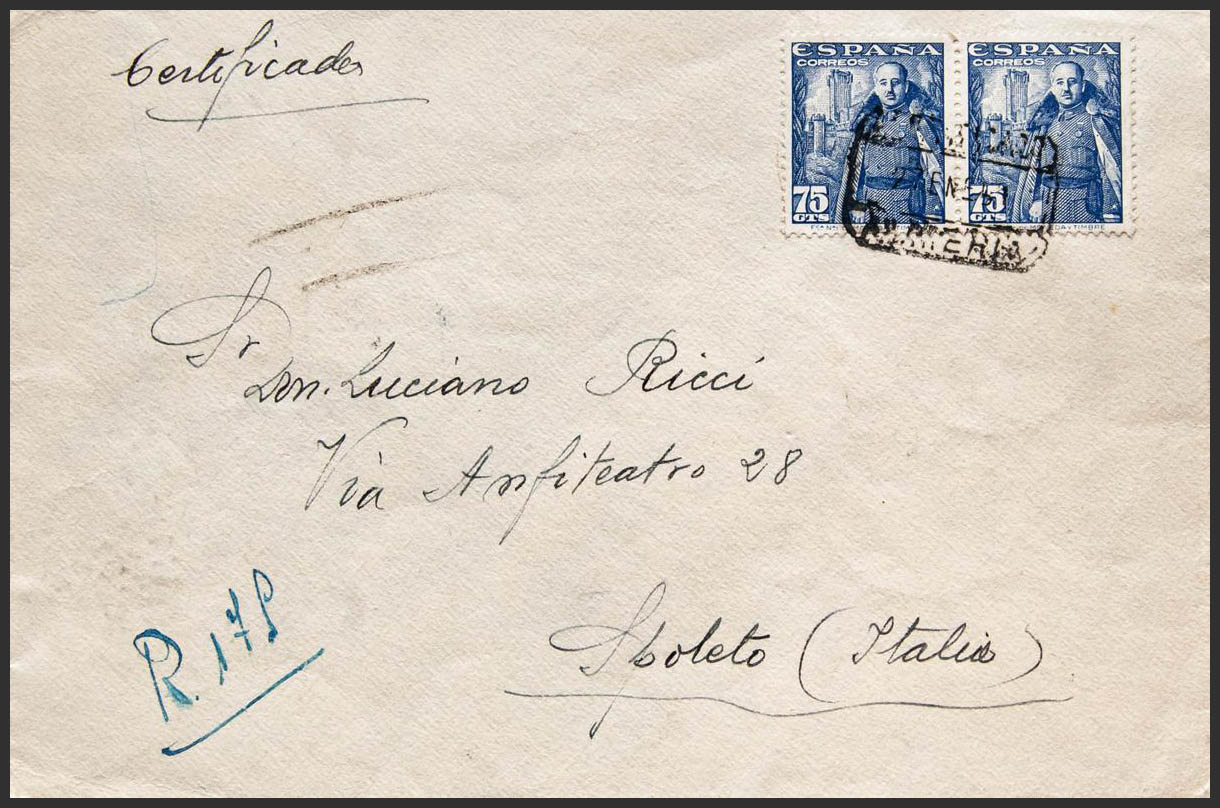 Certificado
ESPAÑA
CORREOS
75
CTS
ESPAÑA
CORREOS
75
CTS
Sr
Don. Luciano Ricci
Via Anfiteatro 28
R.
Spoleto (Italia)